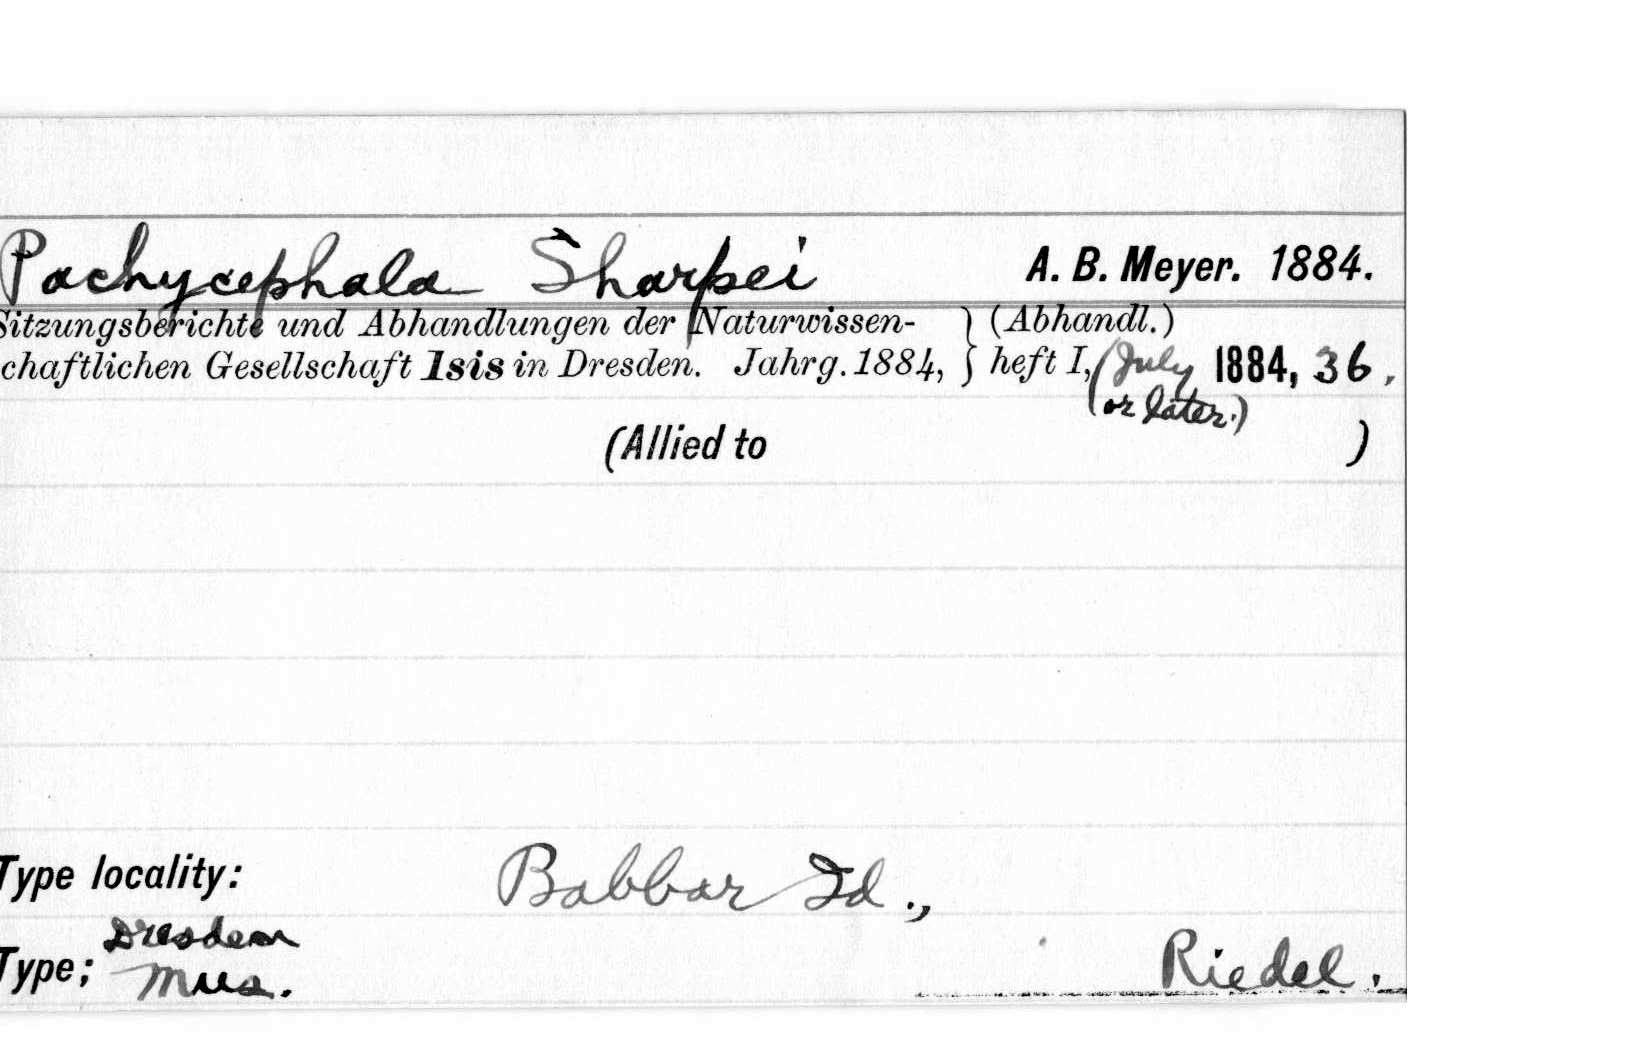 Pachycephala Sharpei A. B. Meyer. 1884.
Sitzungsberichte und Abhandlungen der Naturwissen- } (Abhandl.)
chaftlichen Gesellschaft Isis in Dresden. Jahrg. 1884, } heft I, (July 1884, 36.
or later.)
(Allied to )
Type locality: Babbar Id.,
Dresden
Type; Mus. Riedel.